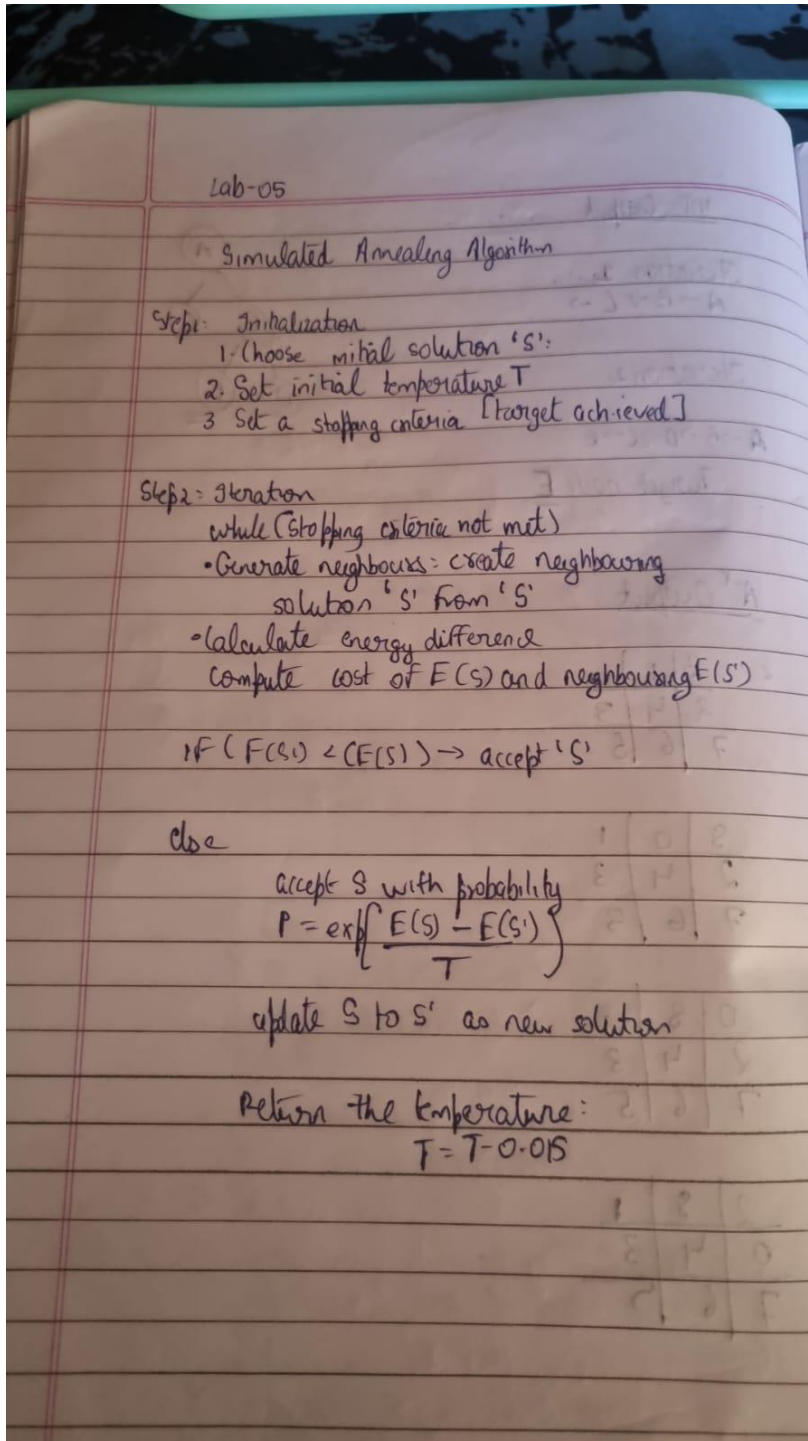 Lab-05
Simulated Annealing Algorithm
Step1: Initialization
1. Choose initial solution 'S':
2. Set initial temperature T
3 Set a stopping criteria [target achieved]
Step2: Iteration
while (stopping criteria not met)
• Generate neighbours: create neighbouring
solution 'S' from 'S'
• Calculate energy difference
compute cost of E(S) and neighbouring E(S')
if (F(S1) < (E(S)) → accept 'S'
else
accept S with probability
P = exp{ E(S) - E(S') / T }
update S to S' as new solution
Return the temperature:
T = T-0.015